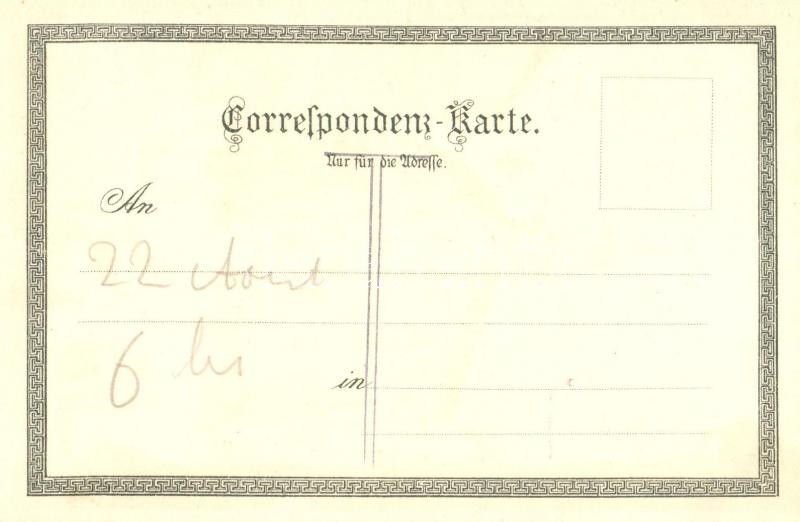 Correſpondenz-Karte.
Nur für die Adreſſe.
An
22 Aout
6 hs
in